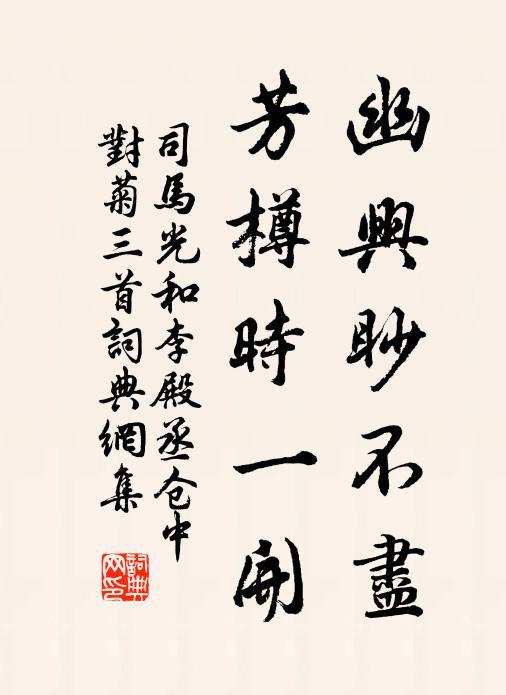 幽興眇不盡
芳樽時一開
司馬光和李殿丞仓中
對菊三首詞典網集
詞典
网印